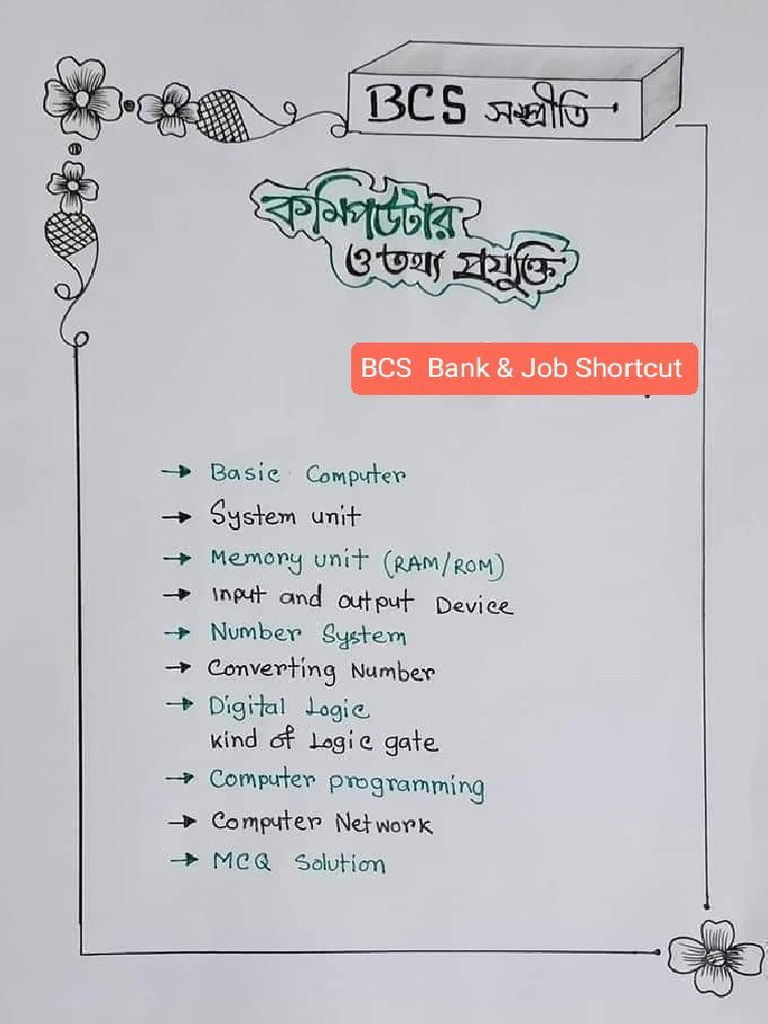 BCS সম্প্রীতি
কম্পিউটার
ও তথ্য প্রযুক্তি
BCS Bank & Job Shortcut
→ Basic Computer
→ System unit
→ Memory unit (RAM/ROM)
→ Input and output Device
→ Number System
→ Converting Number
→ Digital Logic
kind of Logic gate
→ Computer programming
→ Computer Network
→ MCQ Solution